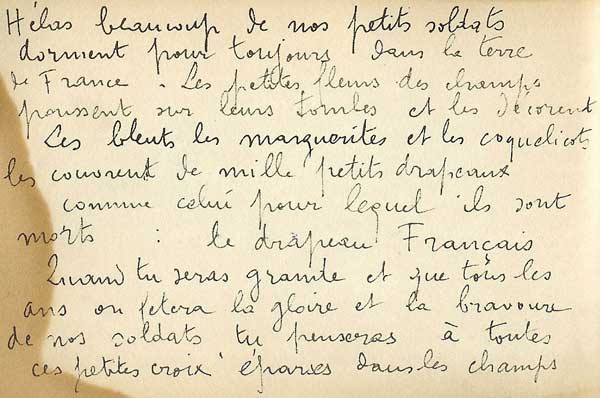 Hélas beaucoup de nos petits soldats
dorment pour toujours dans la terre
de France. Les petites fleurs des champs
poussent sur leurs tombes et les décorent
Les bleuts les marguerites et les coquelicots
les couvrent de mille petits drapeaux
comme celui pour lequel ils sont
morts : le drapeau Français
Quand tu seras grande et que tous les
ans on fetera la gloire et la bravoure
de nos soldats tu penseras à toutes
ces petites croix éparses dans les champs